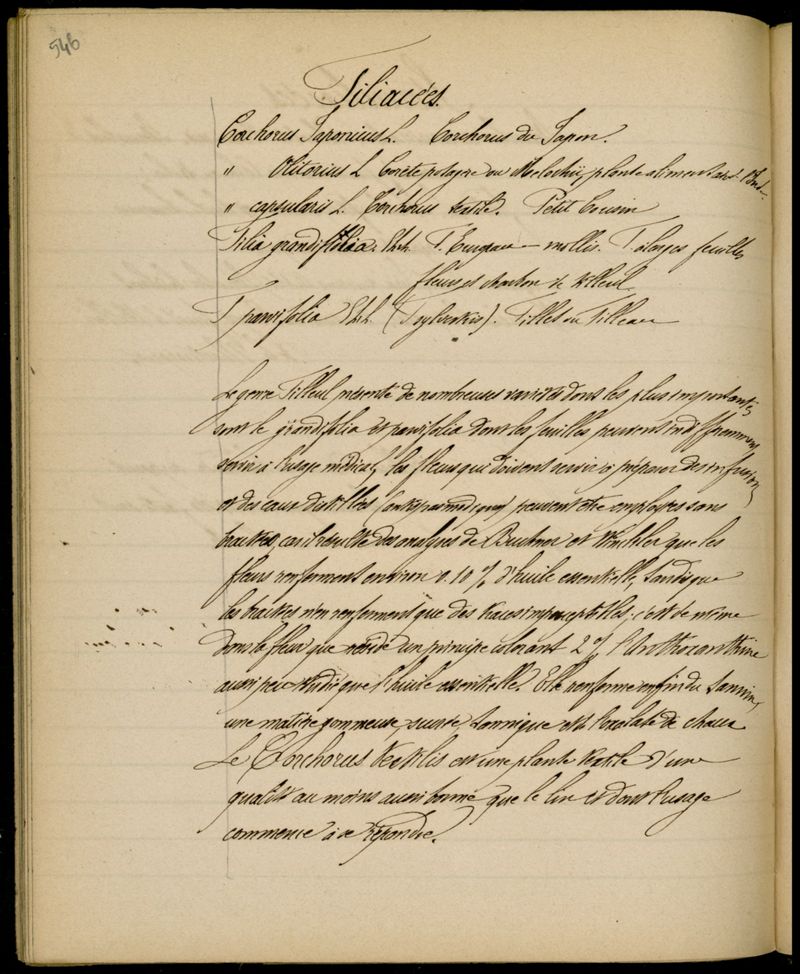 546
Tiliacées.
Corchorus Japonicus L. Corchorus du Japon.
" Olitorius L Corète potagère ou Mélochie, plante alimentaire
" capsularis L. Corchorus textile. Petit Cousin
Tilia grandifolia. Ehrh. T. Europaea mollis. T. à larges feuilles
fleurs et charbon de tilleul
T parvifolia Ehrh. (T sylvestris). Tillet ou Tilleau
Le genre Tilleul présente de nombreuses variétés dont les plus importantes
sont le grandifolia et parvifolia dont les feuilles peuvent indifféremment
servir à l'usage médical, les fleurs qui doivent servir à préparer des infusions
et des eaux distillées (antispasmodiques) peuvent être employées sans
bractées, car il résulte des analyses de Buchner et Winckler que les
fleurs renferment environ 0.10 % d'huile essentielle, tandis que
les bractées n'en renferment que des traces imperceptibles; c'est de même
dans la fleur que réside un principe colorant 2 % l'Anthoxanthine
aussi peu étudié que l'huile essentielle. Elle renferme enfin du tannin,
une matière gommeuse, sucre tannique et l'oxalate de chaux
Le Corchorus textilis est une plante textile d'une
qualité au moins aussi bonne que le lin et dont l'usage
commence à se répandre.